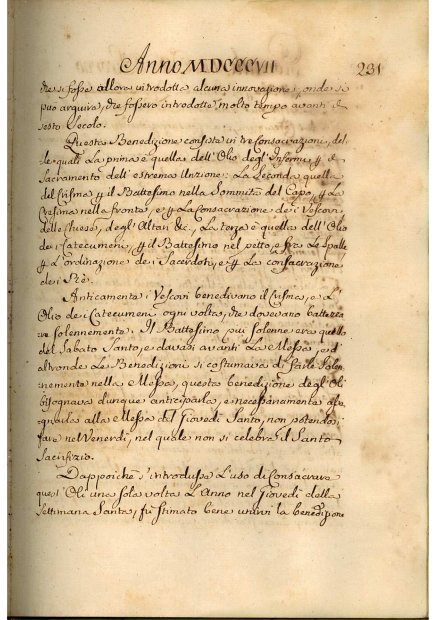 Anno MDCCCVII
231
che si fosse allora introdotta alcuna innovazione, onde si
può arguire, che fossero introdotte molto tempo avanti il
sesto secolo.
Questa Benedizione consiste in tre Consacrazioni, del
le quali La prima è quella dell'Olio degl'Infermi, p il
Sacramento dell'estrema Unzione: La Seconda quella
del Crisma p il Battesimo nella Sommità del Capo, p La
Cresima nella fronte, e p La Consacrazione de i Vescovi
delle Chiese, degl'Altari &c., La terza è quella dell'Olio
de i Catecumeni, p il Battesimo nel petto, e fra Le Spalle
p L'ordinazione de i Sacerdoti, e p La consacrazione
de i Rè.
Anticamente i Vescovi benedivano il Crisma, e L'
Olio de i Catecumeni ogni volta, che dovevano battezza
re solennemente. Il Battesimo più solenne era quello
del Sabato Santo, e davasi avanti La Messa, e d'
altronde Le Benedizioni si costumava di farle Solen
nemente nella Messa, questa benedizione degl'Oli
bisognava dunque anticiparla, e necessariamente
alla Messa del Giovedì Santo, non potendosi
fare nel Venerdì, nel quale non si celebra il Santo
Sacrifizio.
Dappoichè s'introdusse L'uso di Consacrare
quest'Oli una sola volta L'Anno nel Giovedì della
Settimana Santa, fù stimato bene unirvi la benedizione